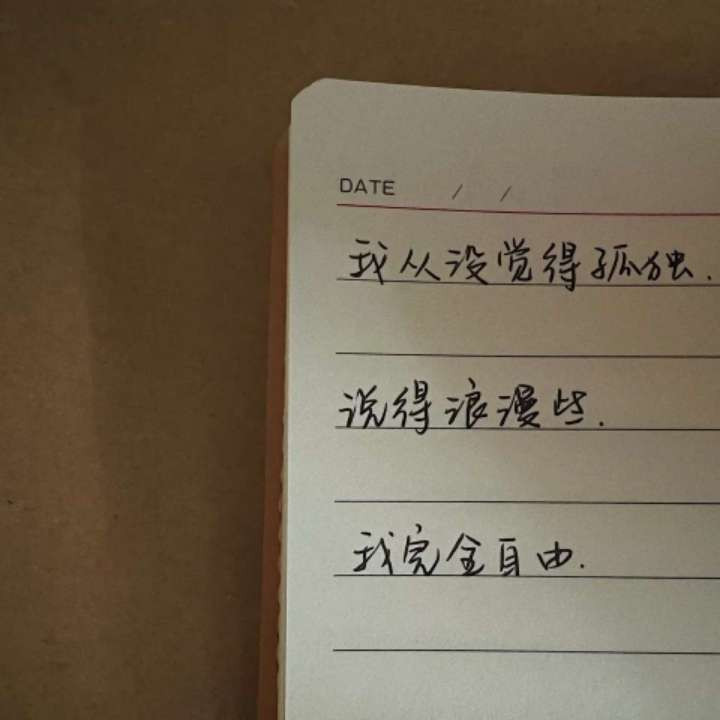 DATE / /
我从没觉得孤独.
说得浪漫些.
我完全自由.